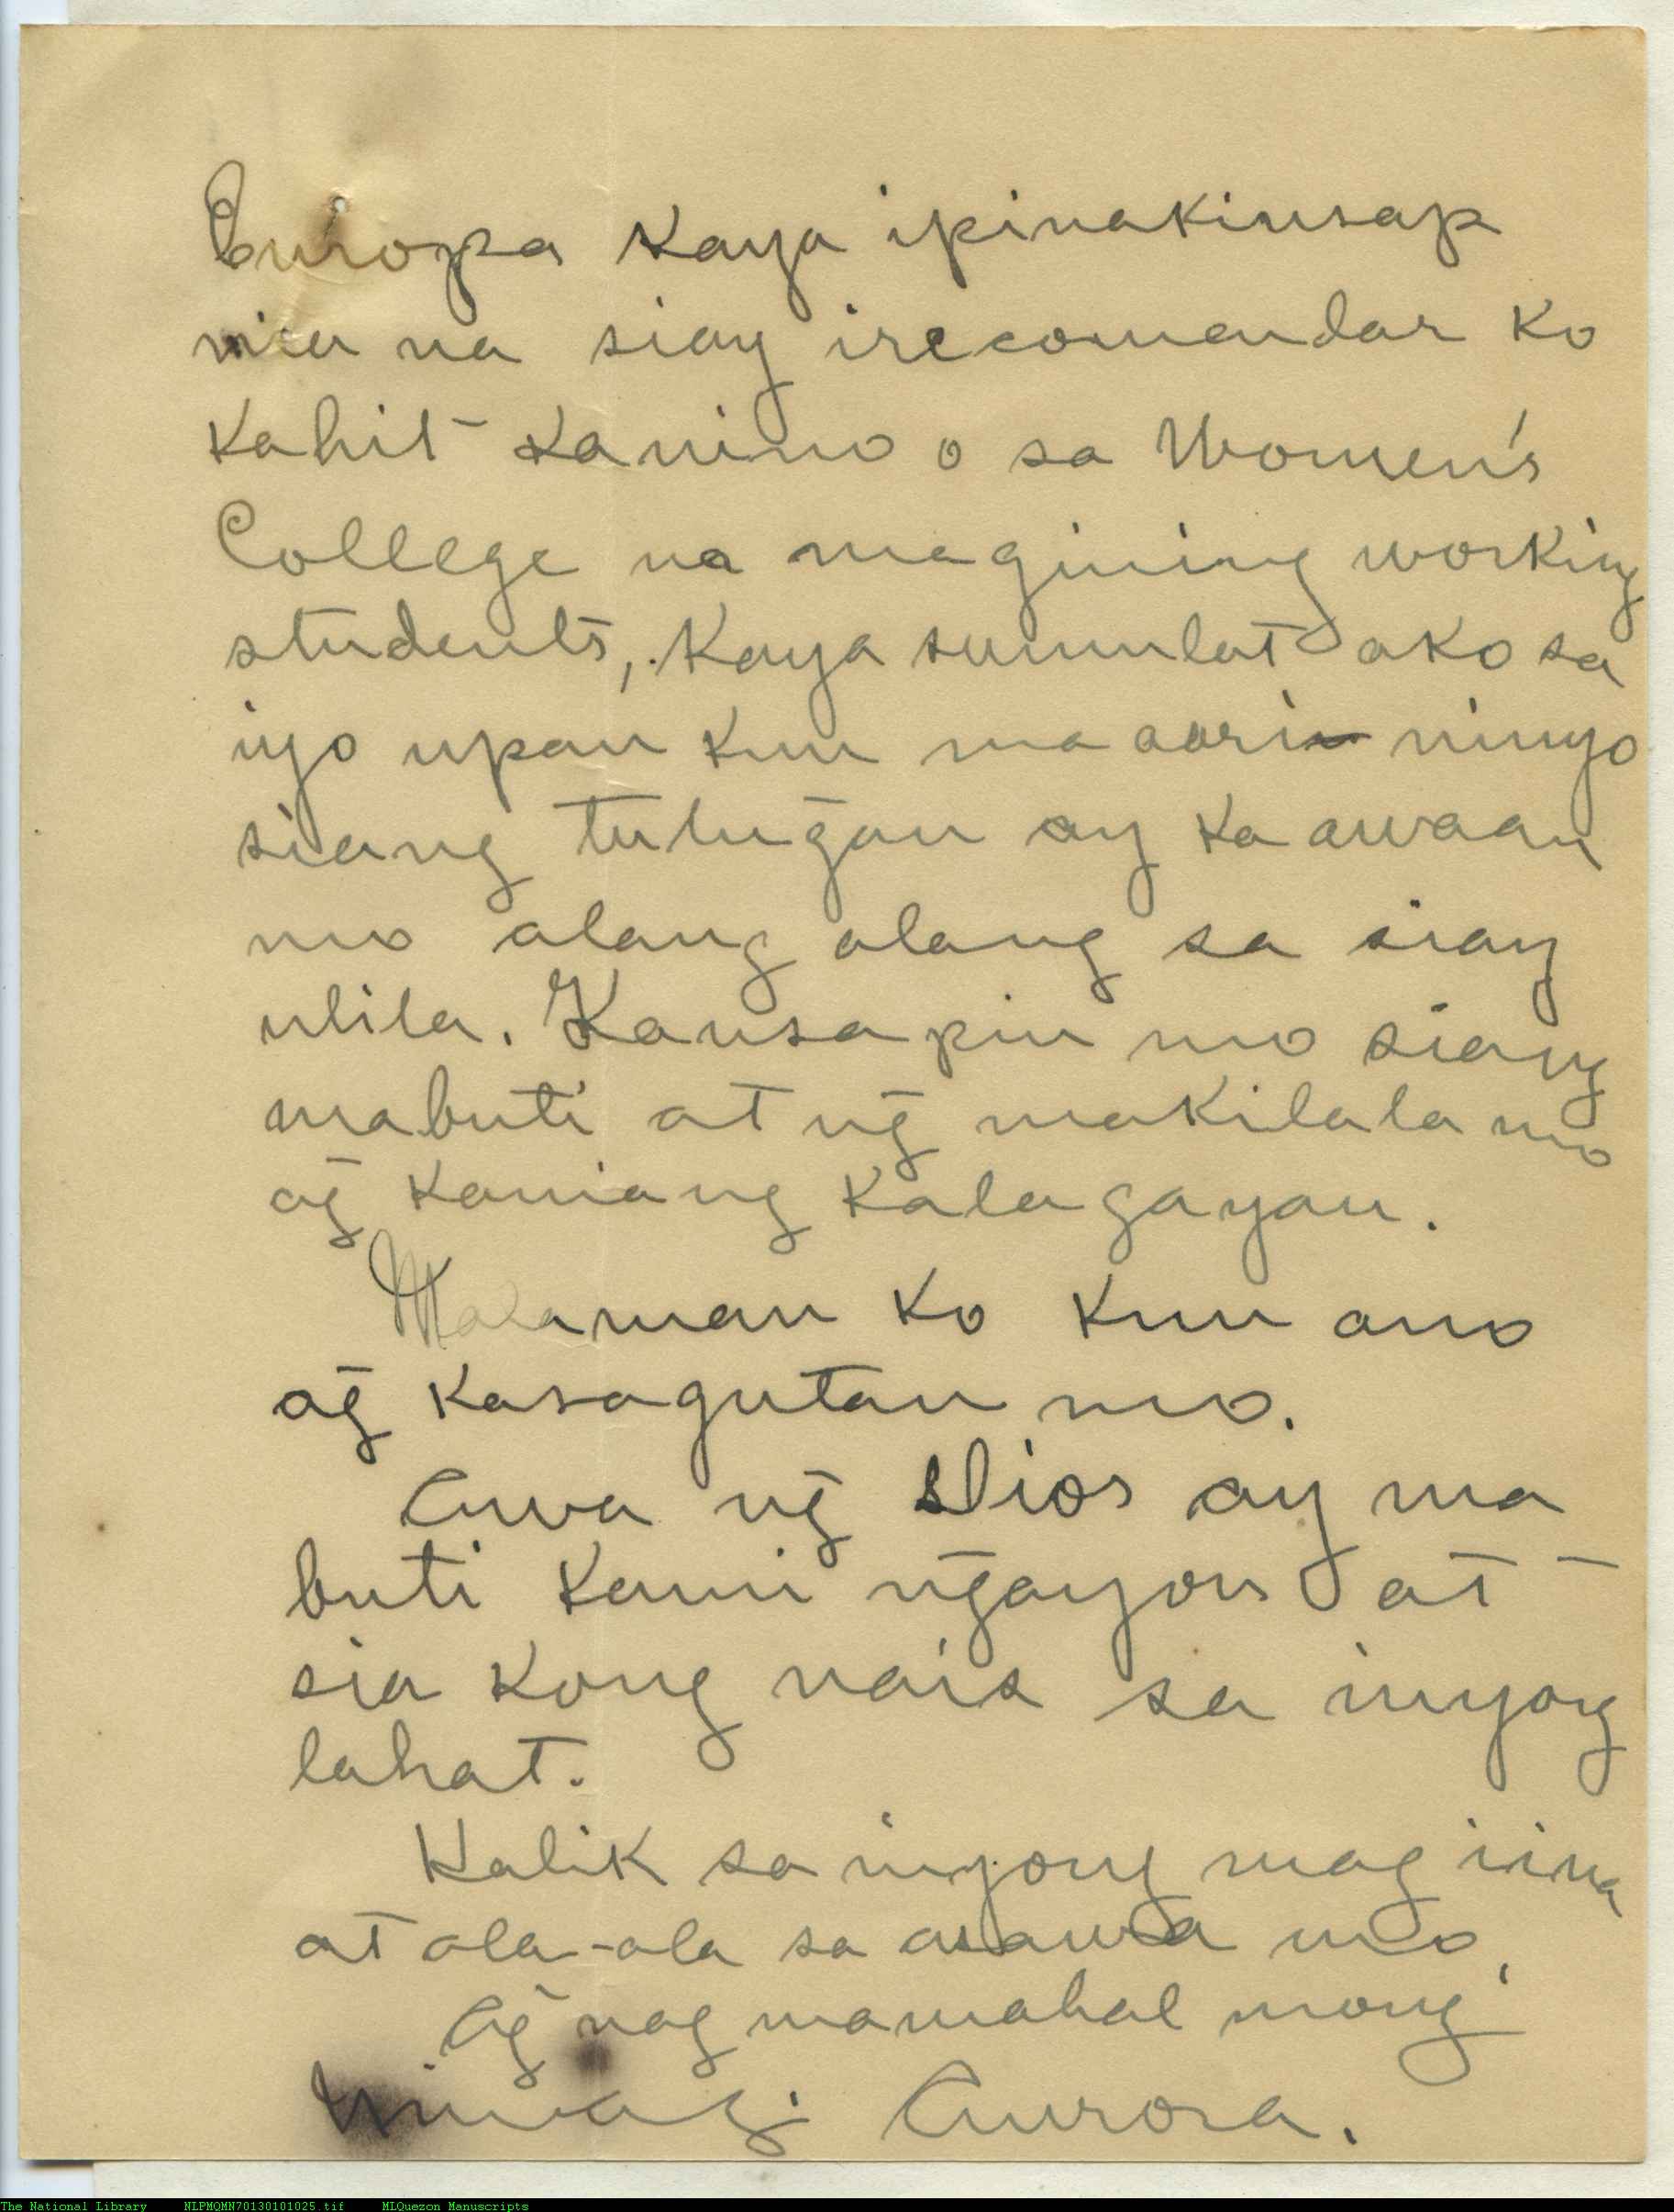 Europa kaya ipinakiusap
nia na siay irecomendar ko
kahit kanino o sa Women's
College na magining working
students, kaya sumulat ako sa
iyo upan kun ma aari ninyo
siang tulugãn ay ka awaan
mo alang alang sa siay
ulila. Kausapin mo siang
mabuti at ng̃ makilala mo
ag̃ kaniang kalagayan.
Malaman ko kun ano
ag̃ kasagutan mo.
Awa ng̃ Dios ay ma
buti kami ng̃ayon at
sia kong nais sa inyong
lahat.
Halik sa inyong mag iina
at ala-ala sa asawa mo,
Ag̃ nag mamahal mong
Aurora.
The National Library NLPMQMN70130101025.tif MLQuezon Manuscripts